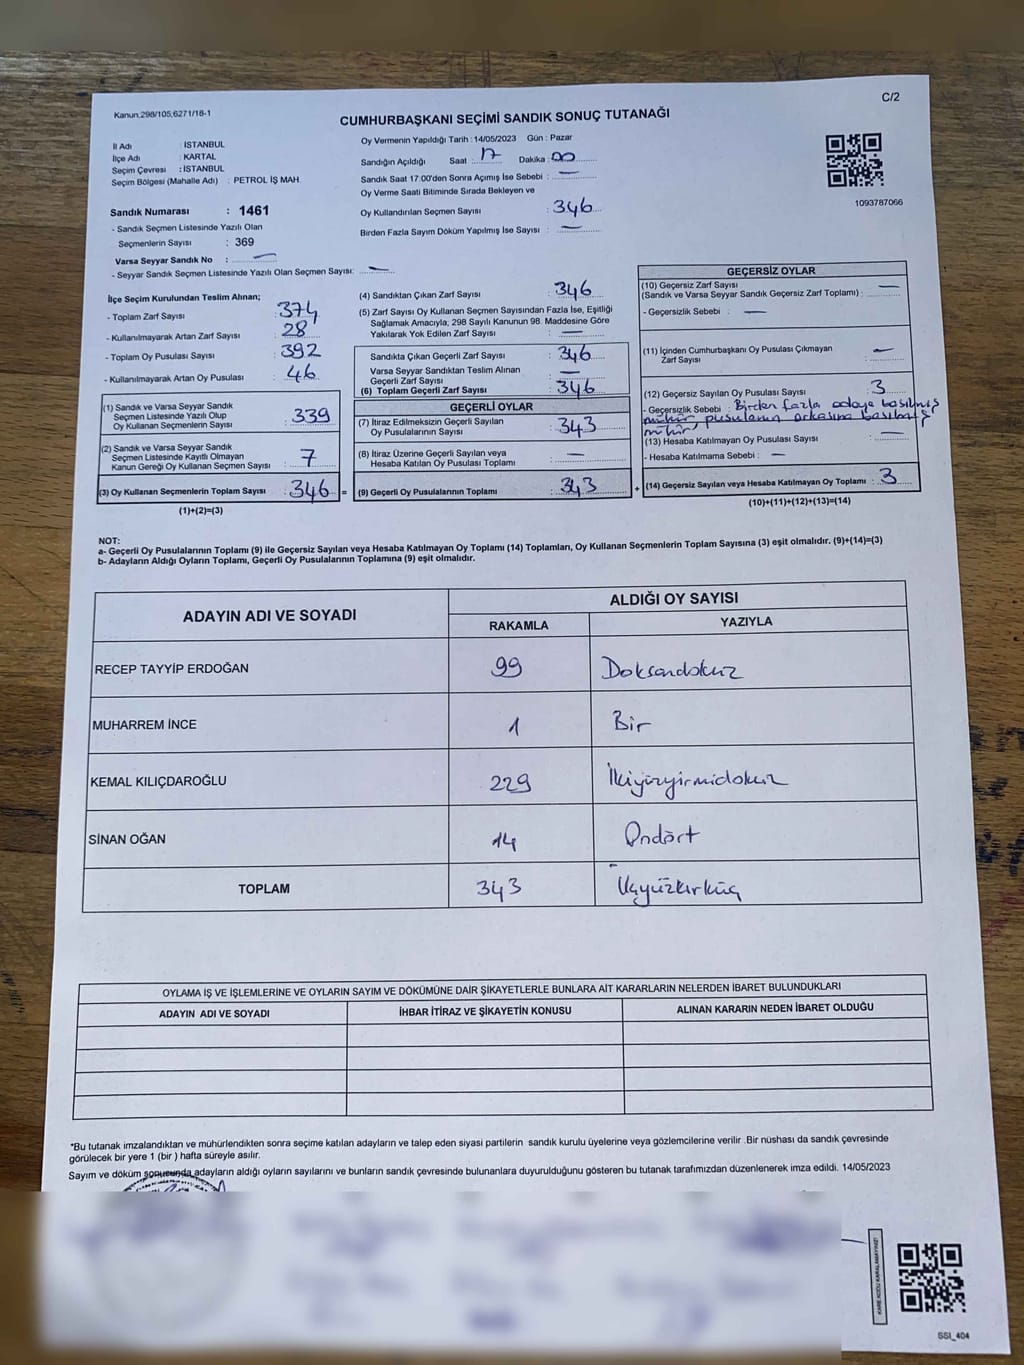 Kanun,298/105,6271/18-1
C/2
CUMHURBAŞKANI SEÇİMİ SANDIK SONUÇ TUTANAĞI
İl Adı : İSTANBUL
İlçe Adı : KARTAL
Seçim Çevresi : İSTANBUL
Seçim Bölgesi (Mahalle Adı) : PETROL İŞ MAH.
Sandık Numarası : 1461
- Sandık Seçmen Listesinde Yazılı Olan
Seçmenlerin Sayısı : 369
Varsa Seyyar Sandık No : —
- Seyyar Sandık Seçmen Listesinde Yazılı Olan Seçmen Sayısı: —
Oy Vermenin Yapıldığı Tarih : 14/05/2023 Gün : Pazar
Sandığın Açıldığı Saat : 17 Dakika : 00
Sandık Saat 17:00'den Sonra Açımış İse Sebebi : —
Oy Verme Saati Bitiminde Sırada Bekleyen ve
Oy Kullandırılan Seçmen Sayısı : 346
Birden Fazla Sayım Döküm Yapılmış İse Sayısı : —
1093787066
İlçe Seçim Kurulundan Teslim Alınan;
- Toplam Zarf Sayısı : 374
- Kullanılmayarak Artan Zarf Sayısı : 28
- Toplam Oy Pusulası Sayısı : 392
- Kullanılmayarak Artan Oy Pusulası : 46
(1) Sandık ve Varsa Seyyar Sandık
Seçmen Listesinde Yazılı Olup
Oy Kullanan Seçmenlerin Sayısı : 339
(2) Sandık ve Varsa Seyyar Sandık
Seçmen Listesinde Kayıtlı Olmayan
Kanun Gereği Oy Kullanan Seçmen Sayısı : 7
(3) Oy Kullanan Seçmenlerin Toplam Sayısı : 346 =
(1)+(2)=(3)
(4) Sandıktan Çıkan Zarf Sayısı : 346
(5) Zarf Sayısı Oy Kullanan Seçmen Sayısından Fazla İse, Eşitliği
Sağlamak Amacıyla, 298 Sayılı Kanunun 98. Maddesine Göre
Yakılarak Yok Edilen Zarf Sayısı : —
Sandıkta Çıkan Geçerli Zarf Sayısı : 346
Varsa Seyyar Sandıktan Teslim Alınan
Geçerli Zarf Sayısı : —
(6) Toplam Geçerli Zarf Sayısı : 346
GEÇERLİ OYLAR
(7) İtiraz Edilmeksizin Geçerli Sayılan
Oy Pusulalarının Sayısı : 343
(8) İtiraz Üzerine Geçerli Sayılan veya
Hesaba Katılan Oy Pusulası Toplamı : —
(9) Geçerli Oy Pusulalarının Toplamı : 343 +
GEÇERSİZ OYLAR
(10) Geçersiz Zarf Sayısı
(Sandık ve Varsa Seyyar Sandık Geçersiz Zarf Toplamı) : —
- Geçersizlik Sebebi : —
(11) İçinden Cumhurbaşkanı Oy Pusulası Çıkmayan
Zarf Sayısı : —
(12) Geçersiz Sayılan Oy Pusulası Sayısı : 3
- Geçersizlik Sebebi : Birden fazla adaya basılmış
mühür, pusulanın arkasına basılmış
mühür
(13) Hesaba Katılmayan Oy Pusulası Sayısı : —
- Hesaba Katılmama Sebebi : —
(14) Geçersiz Sayılan veya Hesaba Katılmayan Oy Toplamı : 3
(10)+(11)+(12)+(13)=(14)
NOT:
a- Geçerli Oy Pusulalarının Toplamı (9) ile Geçersiz Sayılan veya Hesaba Katılmayan Oy Toplamı (14) Toplamları, Oy Kullanan Seçmenlerin Toplam Sayısına (3) eşit olmalıdır. (9)+(14)=(3)
b- Adayların Aldığı Oyların Toplamı, Geçerli Oy Pusulalarının Toplamına (9) eşit olmalıdır.
ADAYIN ADI VE SOYADI
ALDIĞI OY SAYISI
RAKAMLA YAZIYLA
RECEP TAYYİP ERDOĞAN 99 Doksandokuz
MUHARREM İNCE 1 Bir
KEMAL KILIÇDAROĞLU 229 İkiyüzyirmidokuz
SİNAN OĞAN 14 Ondört
TOPLAM 343 Üçyüzkırküç
OYLAMA İŞ VE İŞLEMLERİNE VE OYLARIN SAYIM VE DÖKÜMÜNE DAİR ŞİKAYETLERLE BUNLARA AİT KARARLARIN NELERDEN İBARET BULUNDUKLARI
ADAYIN ADI VE SOYADI İHBAR İTİRAZ VE ŞİKAYETİN KONUSU ALINAN KARARIN NEDEN İBARET OLDUĞU
*Bu tutanak imzalandıktan ve mühürlendikten sonra seçime katılan adayların ve talep eden siyasi partilerin sandık kurulu üyelerine veya gözlemcilerine verilir .Bir nüshası da sandık çevresinde
görülecek bir yere 1 (bir ) hafta süreyle asılır.
Sayım ve döküm sonucunda adayların aldığı oyların sayılarını ve bunların sandık çevresinde bulunanlara duyurulduğunu gösteren bu tutanak tarafımızdan düzenlenerek imza edildi. 14/05/2023
KARE KODU KARALAMAYINIZ!
SSI_404